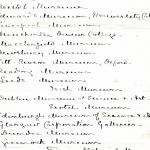 Bristol Museum
Museum
Liverpool Museum
Manchester Owens College.
Macclesfield Museum
Newbury Museum
Pitt-Rivers Museum, Oxford.
Reading Museum
Leeds Museum
Irish Museum
Dublin Museum of Science & Art
Scotch Museum
Edinburgh Museum of Science & A
Glasgow Corporation Galleries.
Dundee Museum
Greenock Museum